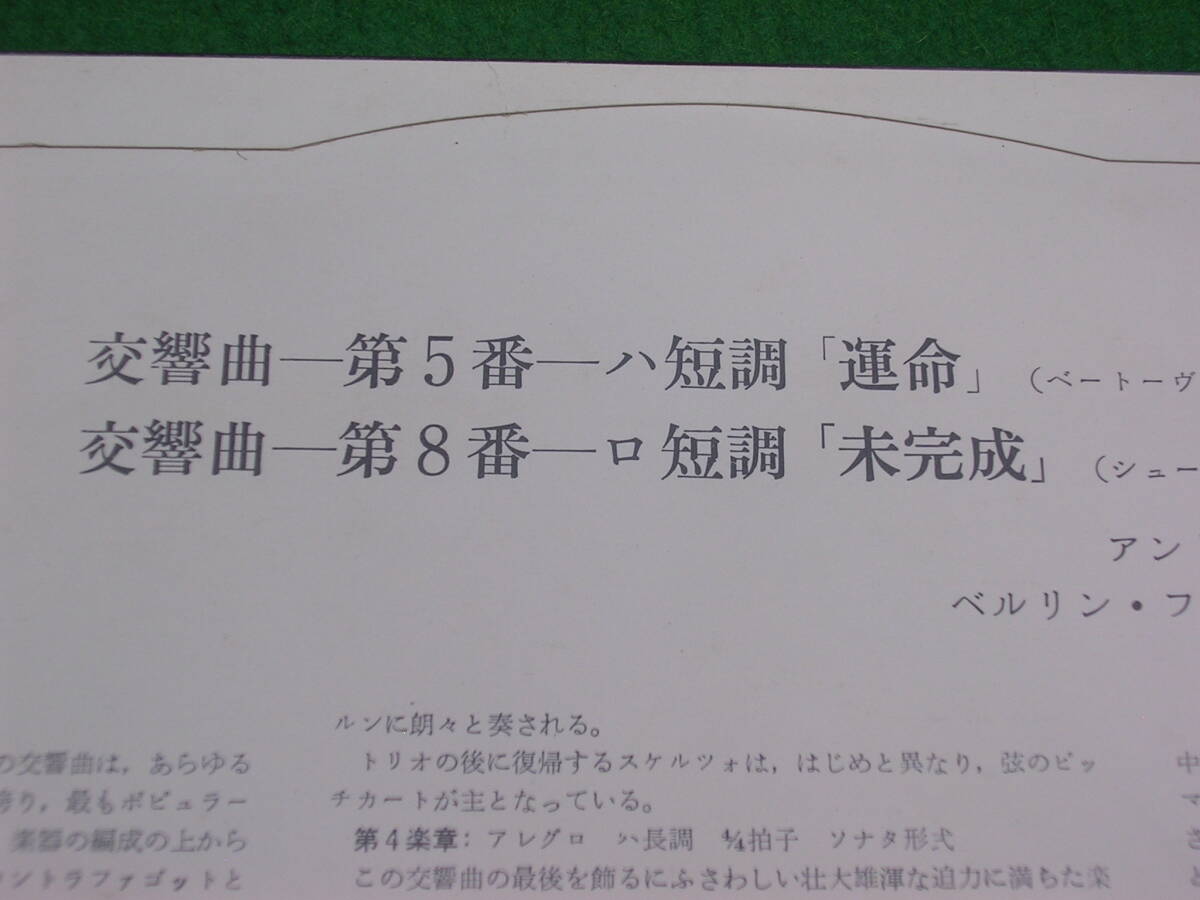 交響曲—第5番—ハ短調「運命」(ベートーヴ
交響曲—第8番—ロ短調「未完成」(シュー
アン
ベルリン・フ
の交響曲は，あらゆる
誇り，最もポピュラー
楽器の編成の上から
ントラファゴットと
ルンに朗々と奏される。
トリオの後に復帰するスケルツォは，はじめと異なり，弦のピッ
チカートが主となっている。
第4楽章：アレグロ ハ長調 4/4拍子 ソナタ形式
この交響曲の最後を飾るにふさわしい壮大雄渾な迫力に満ちた楽
中
マ